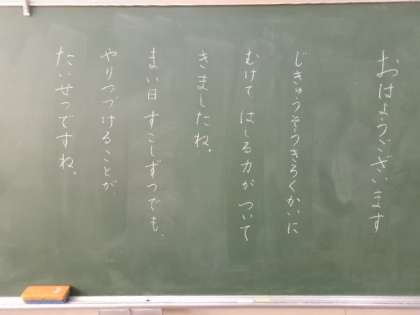 おはようございます
じきゅうそうきろくかいに
むけて はしる力が ついて
きましたね。
まい日 すこしずつでも、
やりつづけることが、
たいせつですね。